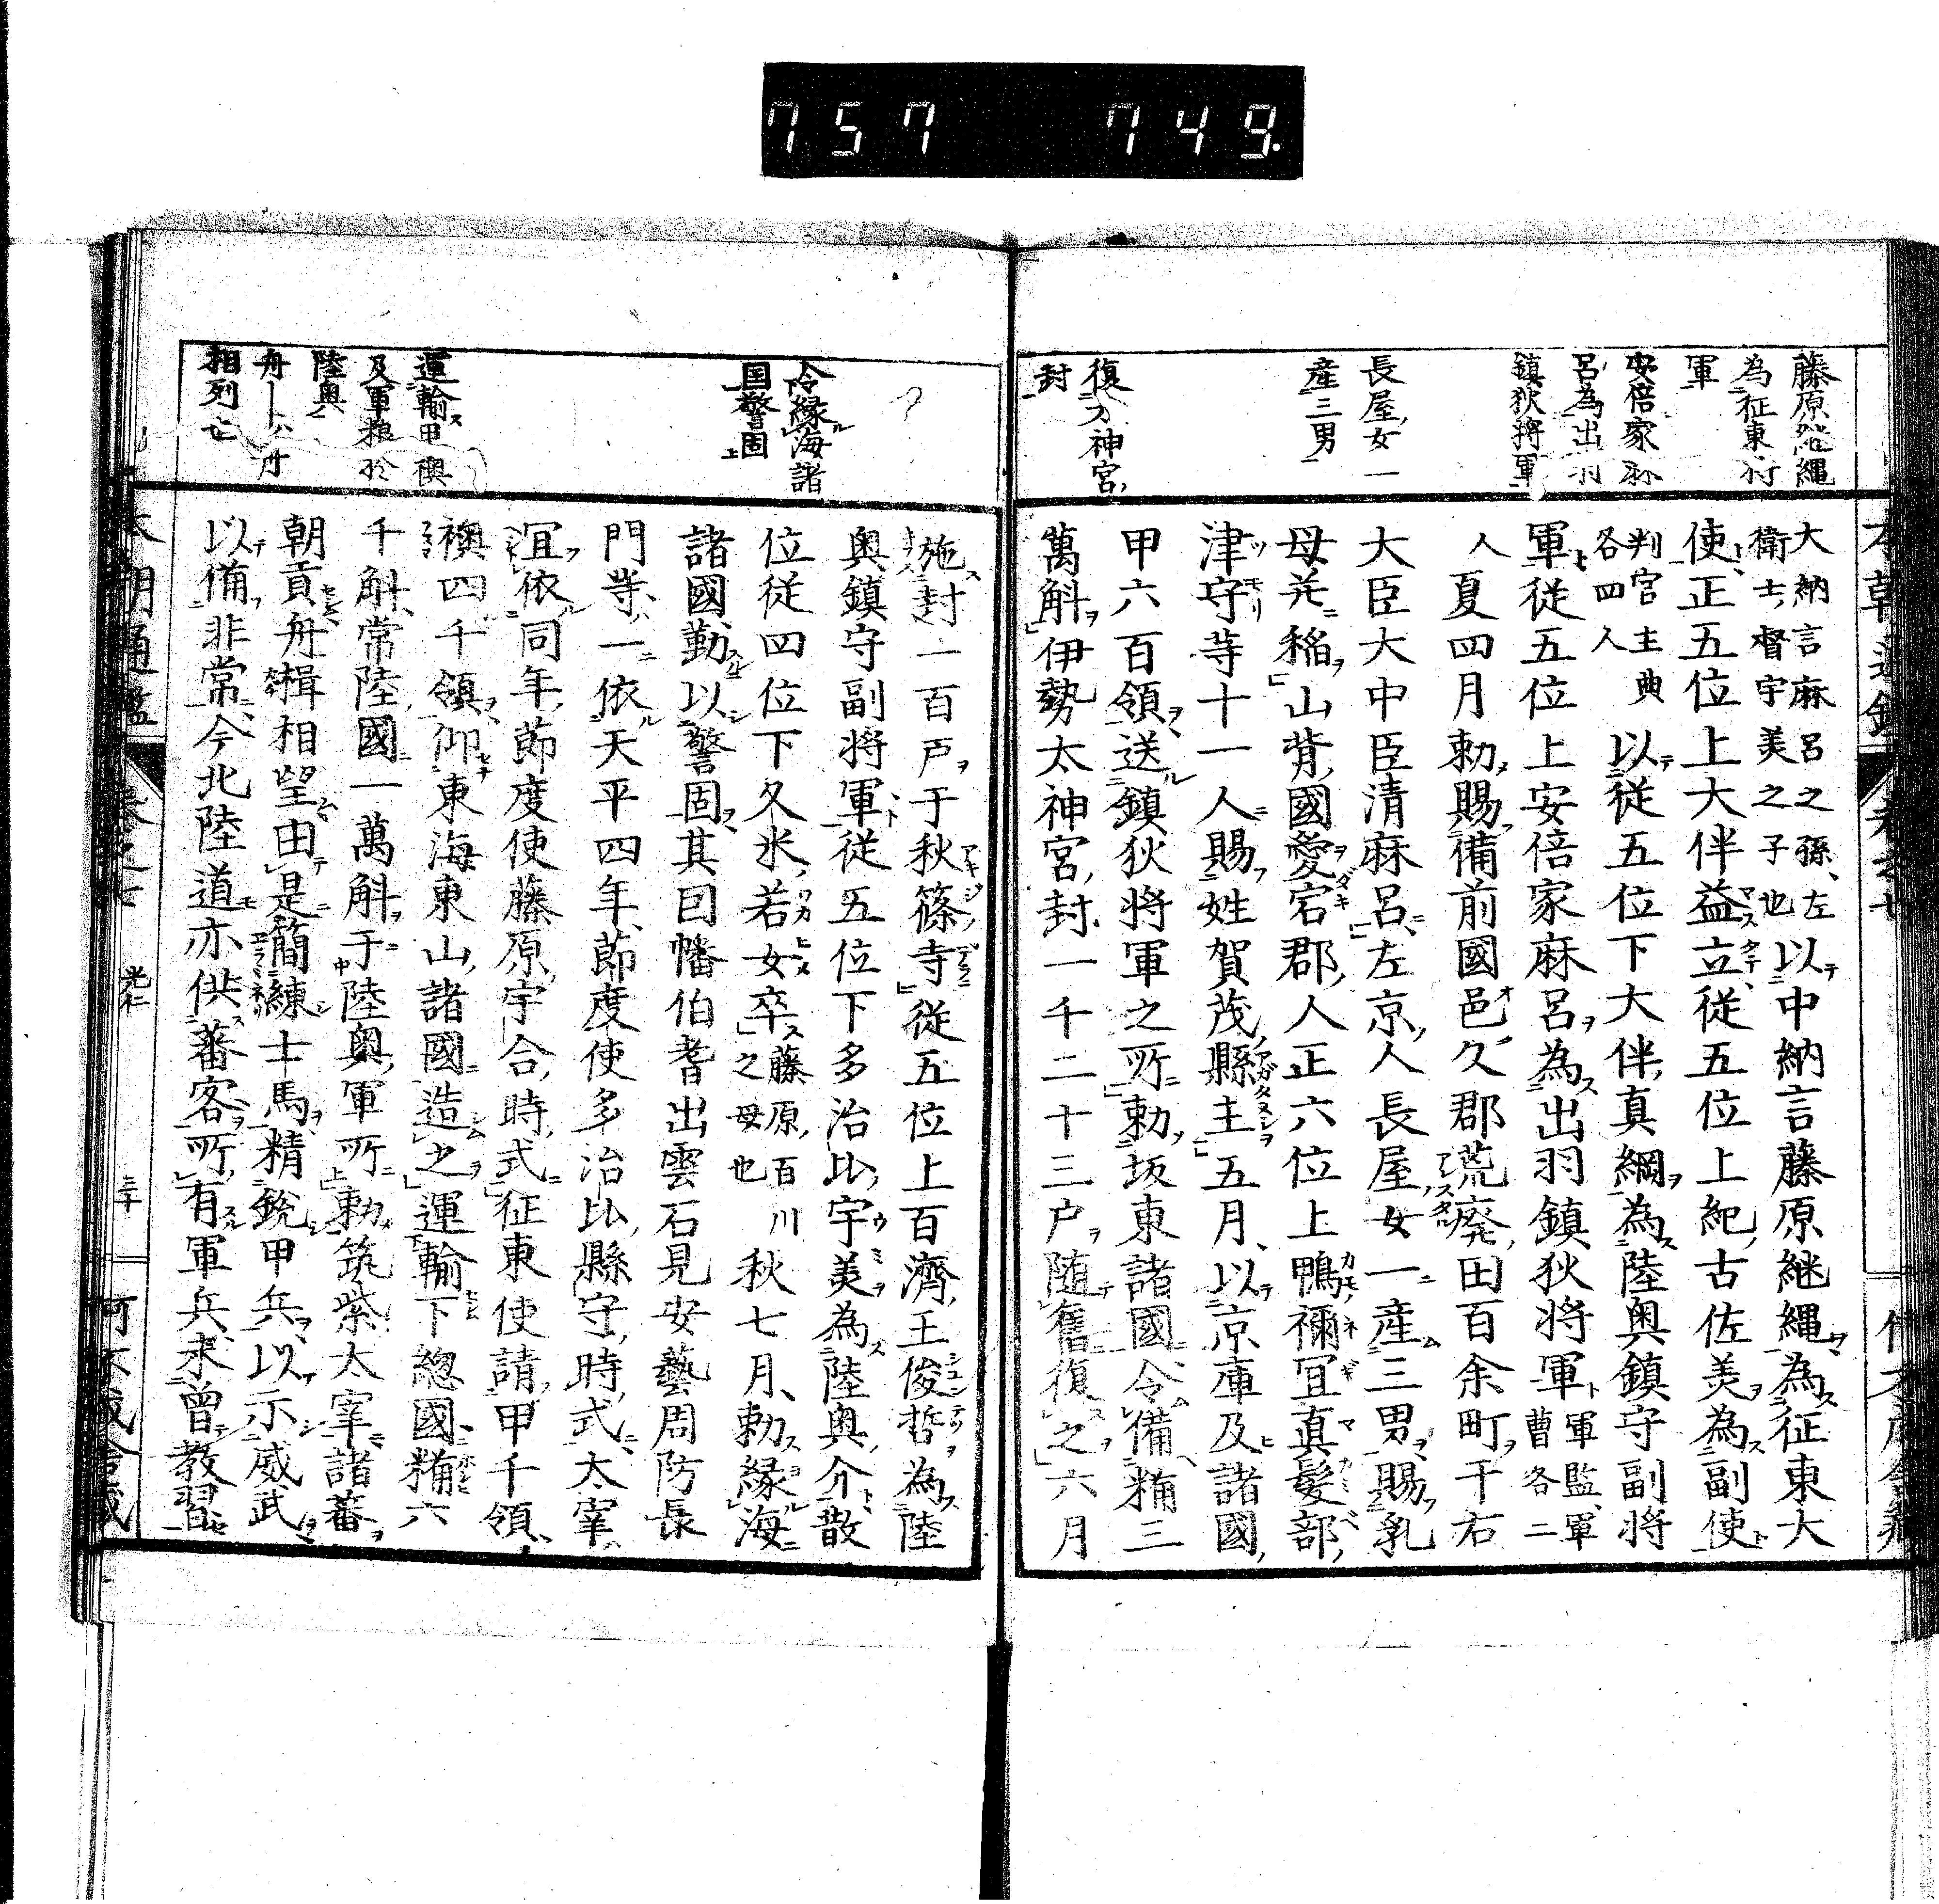 757 749.
藤原継縄
為征東将
軍
安倍家麻
呂為出羽
鎮狄将軍
長屋女一
産三男
復大神宮
封
大納言麻呂之孫左
衛士督宇美之子也
以中納言藤原継縄為征東大
使正五位上大伴益立従五位上紀古佐美為副使
判官主典
各四人
以従五位下大伴真綱為陸奥鎮守副将
軍従五位上安倍家麻呂為出羽鎮狄将軍
軍監軍
曹各二
人
夏四月勅賜備前國邑久郡荒廃田百余町于右
大臣大中臣清麻呂左京人長屋女一産三男賜乳
母并稲山背國愛宕郡人正六位上鴨禰冝真髪部
津守等十一人賜姓賀茂縣主五月以京庫及諸國
甲六百領送鎮狄将軍之所勅坂東諸國令備糒三
萬斛伊勢太神宮封一千二十三戸随舊復之六月
令縁海諸
国警固
運輸甲襖
及軍粮於
陸奥
相列亡
施封一百戸于秋篠寺従五位上百濟王俊哲為陸
奥鎮守副将軍従五位下多治比宇美為陸奥介散
位従四位下久米若女卒
藤原百川
之母也
秋七月勅縁海
諸國勤以警固其因幡伯耆出雲石見安藝周防長
門等一依天平四年節度使多治比縣守時式太宰
冝依同年節度使藤原宇合時式征東使請甲千領
襖四千領仰東海東山諸國造之運輸下総國糒六
千斛常陸國一萬斛于陸奥軍所勅筑紫太宰諸蕃
朝貢舟楫相望由是簡練士馬精鋭甲兵以示威武
以備非常今北陸道亦供蕃客所有軍兵未曽教習
本朝通鑑
光仁
三十